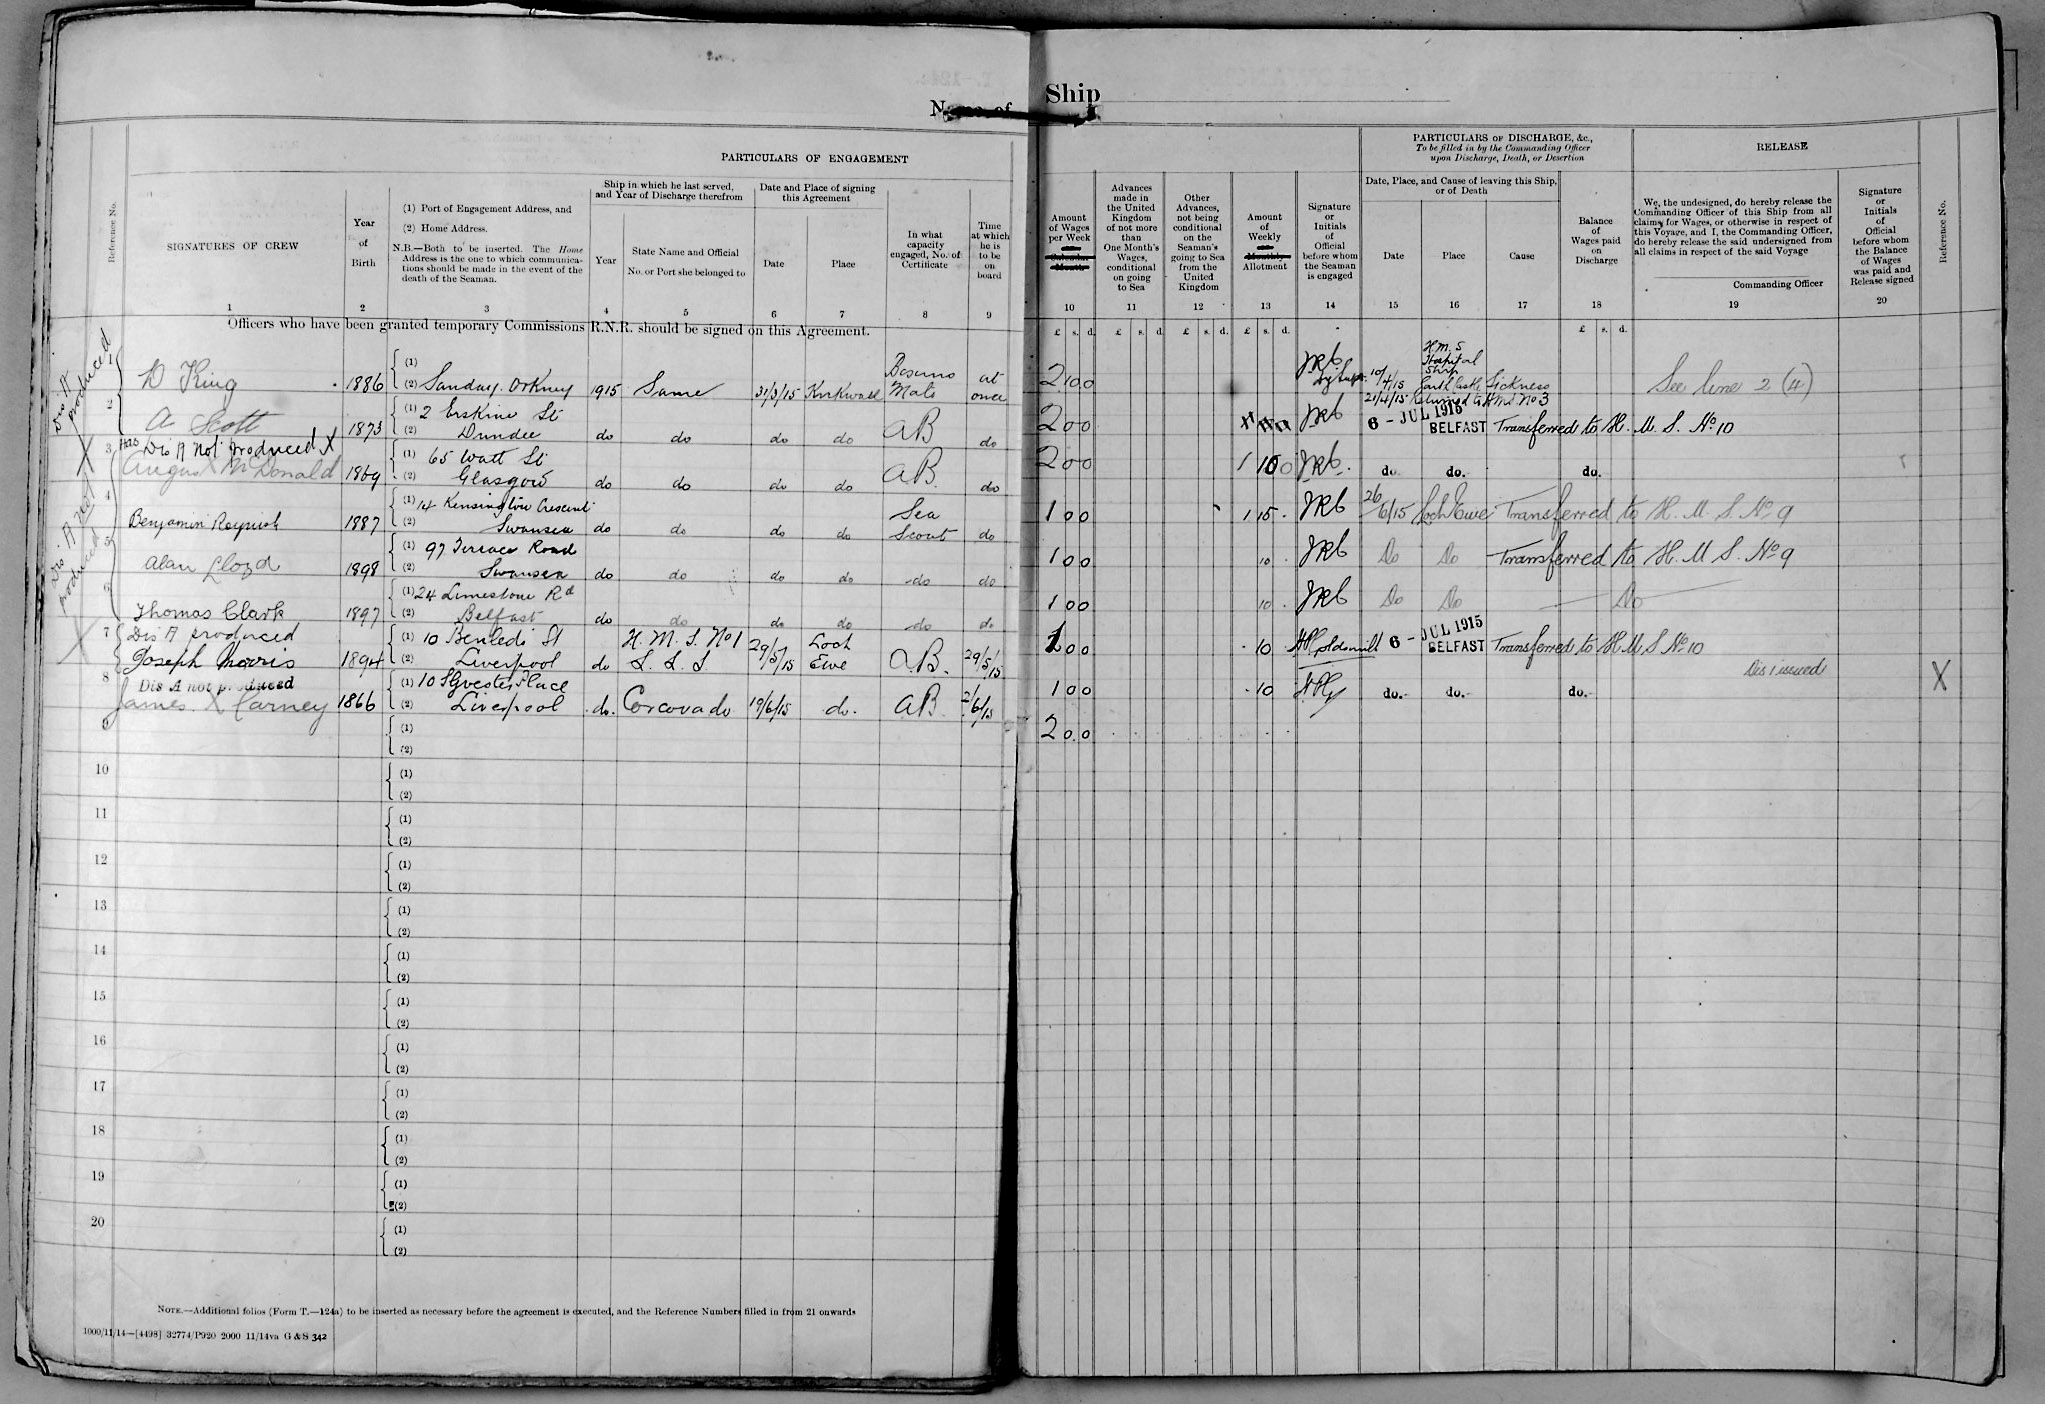 Name of Ship
PARTICULARS OF ENGAGEMENT
PARTICULARS OF DISCHARGE, &c.,
To be filled in by the Commanding Officer
upon Discharge, Death, or Desertion
RELEASE
Reference No.
SIGNATURES OF CREW
1
Year
of
Birth
2
(1) Port of Engagement Address, and
(2) Home Address.
N.B.—Both to be inserted. The Home
Address is the one to which communica-
tions should be made in the event of the
death of the Seaman.
3
Ship in which he last served,
and Year of Discharge therefrom
Year
4
State Name and Official
No. or Port she belonged to
5
Date and Place of signing
this Agreement
Date
6
Place
7
In what
capacity
engaged, No. of
Certificate
8
Time
at which
he is
to be
on
board
9
Amount
of Wages
per Week
Calendar
Month
10
Advances
made in
the United
Kingdom
of not more
than
One Month's
Wages,
conditional
on going
to Sea
11
Other
Advances,
not being
conditional
on the
Seaman's
going to Sea
from the
United
Kingdom
12
Amount
of
Weekly
Monthly
Allotment
13
Signature
or
Initials
of
Official
before whom
the Seaman
is engaged
14
Date, Place, and Cause of leaving this Ship,
or of Death
Date
15
Place
16
Cause
17
Balance
of
Wages paid
on
Discharge
18
We, the undersigned, do hereby release the
Commanding Officer of this Ship from all
claims for Wages, or otherwise in respect of
this Voyage, and I, the Commanding Officer,
do hereby release the said undersigned from
all claims in respect of the said Voyage
Commanding Officer
19
Signature
or
Initials
of
Official
before whom
the Balance
of Wages
was paid and
Release signed
20
Reference No.
Officers who have been granted temporary Commissions R.N.R. should be signed on this Agreement.
£ s. d. £ s. d. £ s. d. £ s. d. £ s. d.
Dis A produced
1 D King 1886 (1) (2) Sanday. Orkney 1915 Same 31/3/15 Kirkwall Bosuns Mate at once 2 10 0 JRC 10/4/15 H.M.S Hospital Ship Garth Castle Sickness See line 2 (4)
21/4/15 Returned to HMS No 3
2 A Scott 1873 (1) 2 Erskine St (2) Dundee do do do do AB do 2 0 0 JRC 6 - JUL 1915 BELFAST Transferred to H. M. S. No 10
3 Dis A Not Produced X
Angus X McDonald 1869 (1) 65 Watt St (2) Glasgow do do do do AB. do 2 0 0 1 10 0 JRC. do do. do.
Dis A not produced
4 Benjamin Reynish 1887 (1) 14 Kensington Crescent (2) Swansea do do do do Sea Scout do 1 0 0 1 15 . JRC 26/6/15 Loch Ewe Transferred to H. M. S. No 9
5 Alan Lloyd 1898 (1) 97 Terrace Road (2) Swansea do do do do do do 1 0 0 10 . JRC Do Do Transferred to H. M. S. No 9
6 Thomas Clark 1897 (1) 24 Limestone Rd (2) Belfast do do do do do do 1 0 0 10 . JRC Do Do Do
7 Dis A produced
Joseph Morris 1894 (1) 10 Benledi St (2) Liverpool do H. M. S. No 1 S. S. S 29/5/15 Loch Ewe AB. 29/5/15 1 0 0 . 10 6 - JUL 1915 BELFAST Transferred to H M S No 10
Dis 1 issued
8 Dis A not produced
James X Carney 1866 (1) 10 Sylvester Place (2) Liverpool do. Corcovado 19/6/15 do. AB 21/6/15 1 0 0 . 10 do. do. do. X
9 (1) (2) 2 0 0
10 (1)
(2)
11 (1)
(2)
12 (1)
(2)
13 (1)
(2)
14 (1)
(2)
15 (1)
(2)
16 (1)
(2)
17 (1)
(2)
18 (1)
(2)
19 (1)
(2)
20 (1)
(2)
NOTE.—Additional folios (Form T.—124a) to be inserted as necessary before the agreement is executed, and the Reference Numbers filled in from 21 onwards
1000/11/14—[4498] 32774/P920 2000 11/14va G & S 342